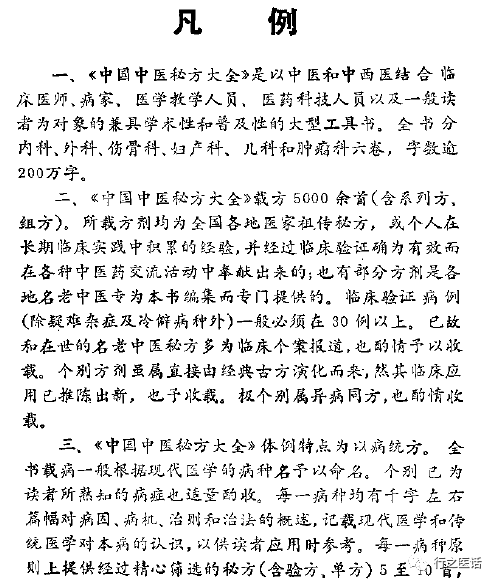 凡 例
一、《中国中医秘方大全》是以中医和中西医结合临
床医师、病家、医学教学人员、医药科技人员以及一般读
者为对象的兼具学术性和普及性的大型工具书。全书分
内科、外科、伤骨科、妇产科、儿科和肿瘤科六卷,字数逾
200万字。
二、《中国中医秘方大全》载方5000余首(含系列方、
组方)。所载方剂均为全国各地医家祖传秘方,或个人在
长期临床实践中积累的经验,并经过临床验证确为有效而
在各种中医药交流活动中奉献出来的;也有部分方剂是各
地名老中医专为本书编集而专门提供的。临床验证病例
(除疑难杂症及冷僻病种外)一般必须在30例以上。已故
和在世的名老中医秘方多为临床个案报道,也酌情予以收
载。个别方剂虽属直接由经典古方演化而来,然其临床应
用已推陈出新,也予收载。极个别属异病同方,也酌情收
载。
三、《中国中医秘方大全》体例特点为以病统方。全
书载病一般根据现代医学的病种名予以命名。个别已为
读者所熟知的病症也适量酌收。每一病种均有千字左右
篇幅对病因、病机、治则和治法的概述,记载现代医学和传
统医学对本病的认识,以供读者应用时参考。每一病种原
则上提供经过精心筛选的秘方(含验方、单方)5至10首,
行之医话